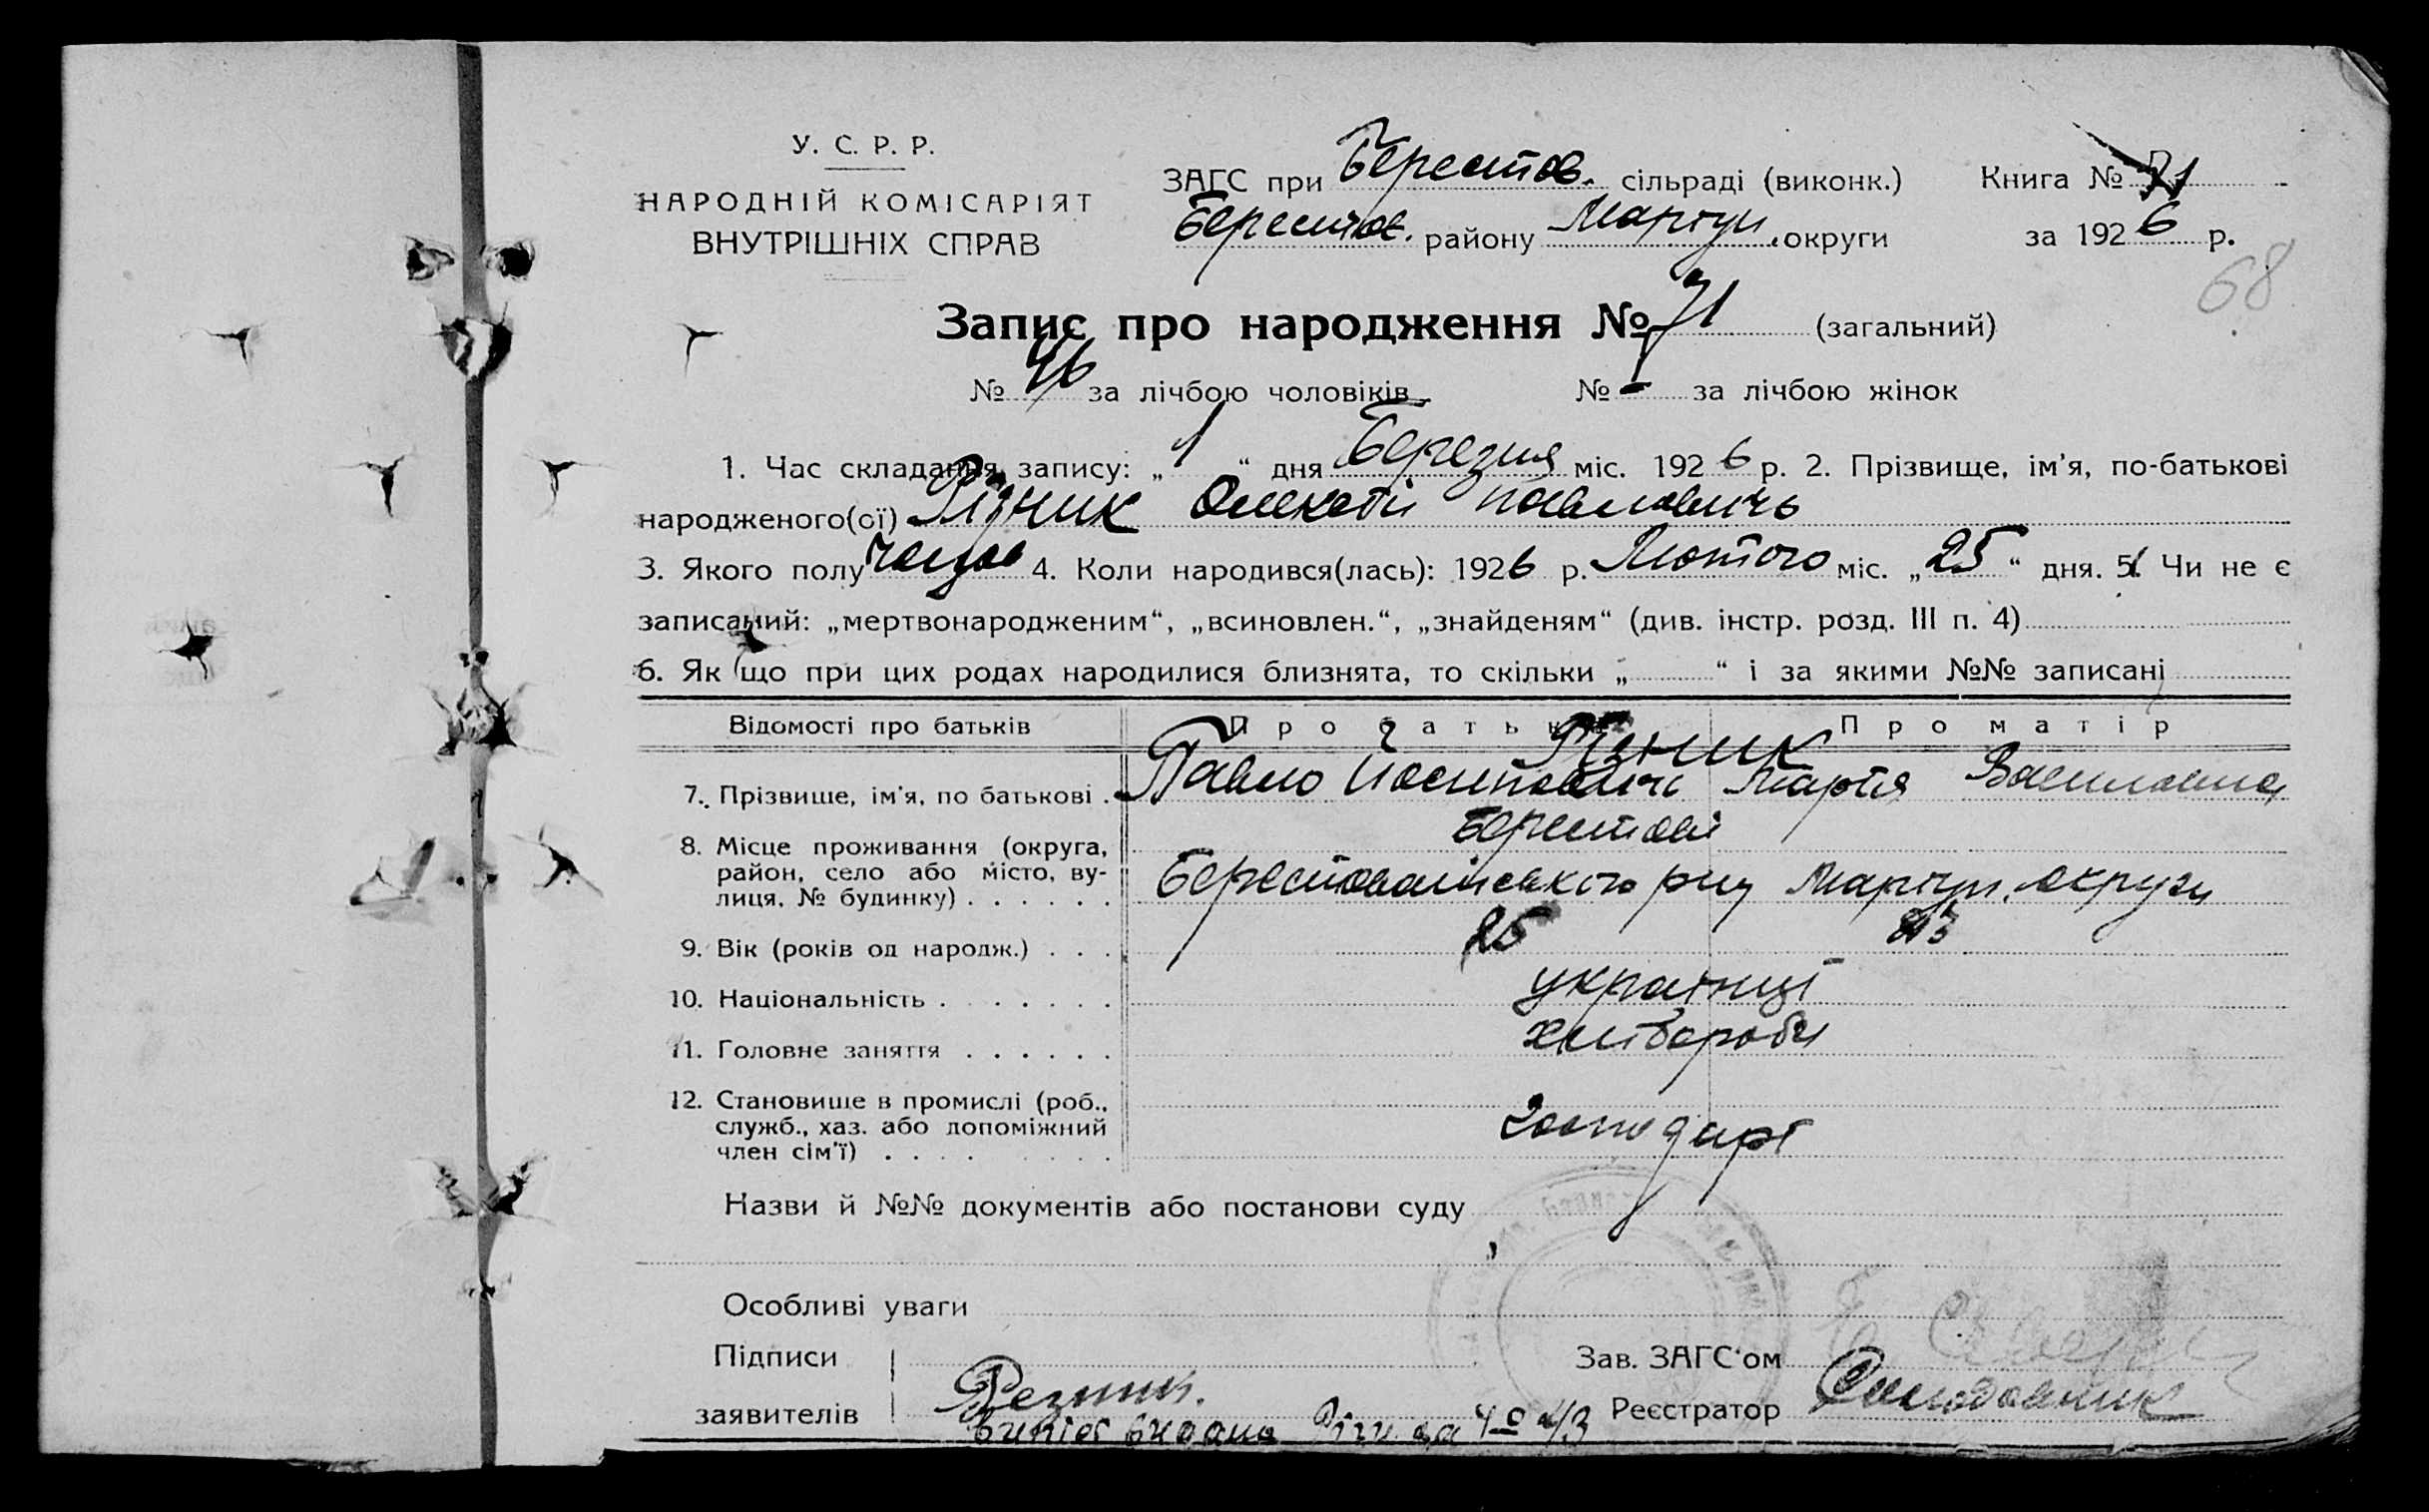 У. С. Р. Р.
НАРОДНІЙ КОМІСАРІЯТ
ВНУТРІШНІХ СПРАВ
ЗАГС при Берестов. сільраді (виконк.) Книга № 71
Берестов. району Маріуп. округи за 1926 р.
68
Запис про народження № 71 (загальний)
№ 46 за лічбою чоловіків № - за лічбою жінок
1. Час складання запису: „1“ дня Березня міс. 1926 р. 2. Прізвище, ім'я, по-батькові
народженого(ої) Різник Олексій Павловичь
3. Якого полу 4. Коли народився(лась): 1926 р. Лютого міс. „25“ дня. 5. Чи не є
записаний: „мертвонародженим“, „всиновлен.“, „знайденям“ (див. інстр. розд. III п. 4)
6. Як що при цих родах народилися близнята, то скільки „ “ і за якими №№ записані
Відомості про батьків Про батька Про матір
Різник
7. Прізвище, ім'я, по батькові . Павло Иосиповичь Марія Василовна
8. Місце проживання (округа, Берестові
район, село або місто, ву-
лиця, № будинку) . . . . . . Берестованського Маріуп. округи
9. Вік (років од народж.) . . . 25
10. Національність . . . . . . . українці
11. Головне заняття . . . . . . хлібороби
12. Становище в промислі (роб.,
служб., хаз. або допоміжний господарі
член сім'ї) . . . . . . . .
Назви й №№ документів або постанови суду
Особливі уваги
Підписи Зав. ЗАГС'ом
заявителів Резник. Реєстратор Солодовник